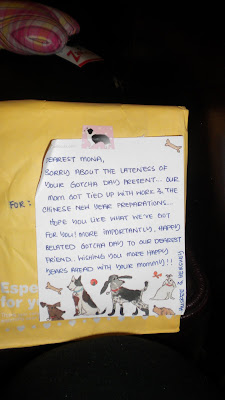 DEAREST MONA,
SORRY ABOUT THE LATENESS OF
YOUR GOTCHA DAY PRESENT... OUR
MOM GOT TIED UP WITH WORK & THE
CHINESE NEW YEAR PREPARATIONS...
HOPE YOU LIKE WHAT WE'VE GOT
FOR YOU! MORE IMPORTANTLY, HAPPY
BELATED GOTCHA DAY TO OUR DEAREST
FRIEND.. WISHING YOU MORE HAPPY
YEARS AHEAD WITH YOUR MOMMY!!
FOR:
Espe
for y